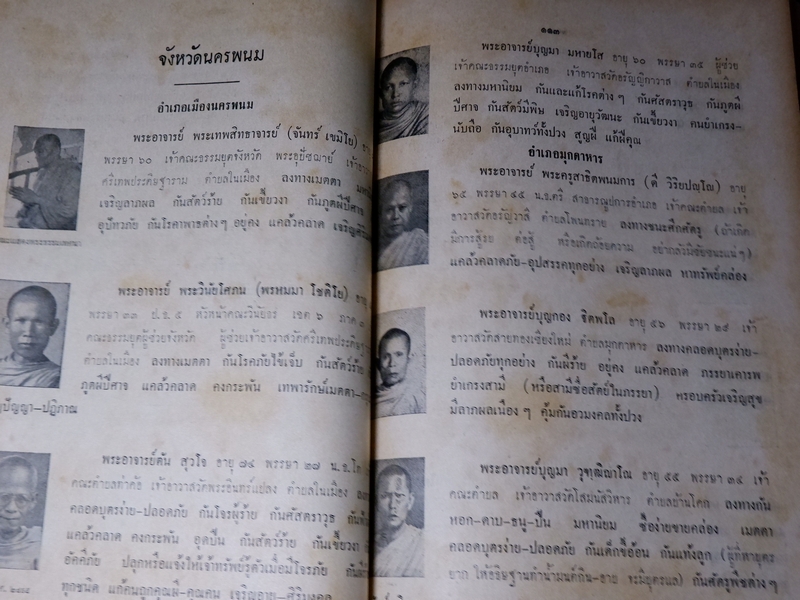 จังหวัดนครพนม
อำเภอเมืองนครพนม
พระอาจารย์ พระเทพสิทธาจารย์ (จันทร์ เขมิโย)
พรรษา ๖๐ เจ้าคณะธรรมยุตจังหวัด พระอุปัชฌาย์
ศรีเทพประดิษฐาราม ตำบลในเมือง ลงทางเมตตา
เจริญลาภผล กันสัตว์ร้าย กันเขี้ยวงา กันภูตผีปีศาจ
อุปัทวภัย กันโรคาพาธต่างๆ อยู่คง แคล้วคลาด
พระอาจารย์ พระวินัยโศภน (พรหมมา โชติโย)
พรรษา ๓๓ ป.ธ.๕
คณะธรรมยุตผู้ช่วยจังหวัด ผู้ช่วยเจ้าอาวาสวัดศรีเทพประดิษฐา
ตำบลในเมือง ลงทางเมตตา กันโรคภัยไข้เจ็บ กันสัตว์ร้าย
ภูตผีปีศาจ แคล้วคลาด คงกระพัน เทพารักษ์เมตตา
ปัญญา-ปฏิภาณ
พระอาจารย์ตัน สุวโจ อายุ ๗๔ พรรษา ๒๗ น.ธ.โท
คณะตำบลท่าค้อ เจ้าอาวาสวัดพระอินทร์แปลง ตำบลในเมือง
คลอดบุตรง่าย-ปลอดภัย กันโจรผู้ร้าย กันศัสตราวุธ
แคล้วคลาด คงกระพัน อุดปืน กันสัตว์ร้าย กันเขี้ยวงา
อัคคีภัย ปลุกหรือแจ้งให้เจ้าทรัพย์รู้ตัวเมื่อมีโจรภัย
ทุกชนิด แก้คนถูกคุณผี-คุณคน เจริญอายุ-สิริมงคล
๑๑๓
พระอาจารย์บุญมา มหายโส อายุ ๖๐ พรรษา ๓๕ ผู้ช่วย
เจ้าคณะธรรมยุตอำเภอ เจ้าอาวาสวัดอรัญญิกาวาส ตำบลในเมือง
ลงทางมหานิยม กันและแก้โรคต่างๆ กันศัสตราวุธ กันภูตผี
ปีศาจ กันสัตว์มีพิษ เจริญอายุวัฒนะ กันเขี้ยวงา คนยำเกรง-
นับถือ กันอุบาทว์ทั้งปวง สูญฝี แก้ผีคุณ
อำเภอมุกดาหาร
พระอาจารย์ พระครูสาธิตพนมการ (ดี วิริยปญฺโญ) อายุ
๖๕ พรรษา ๔๕ น.ธ.ตรี สาธารณูปการอำเภอ เจ้าคณะตำบล เจ้า
อาวาสวัดอรัญวาสี ตำบลโพนทราย ลงทางชนะศึกศัตรู (ถ้าเกิด
มีการสู้รบ ต่อสู้ หรือเกิดถ้อยความ
แคล้วคลาดภัย-อุปสรรคทุกอย่าง เจริญลาภผล หาทรัพย์คล่อง
พระอาจารย์บุญกอง ฐิตพโล อายุ ๕๖ พรรษา ๒๙ เจ้า
อาวาสวัดสายทองเชียงใหม่ ตำบลมุกดาหาร ลงทางคลอดบุตรง่าย-
ปลอดภัยทุกอย่าง กันผีร้าย อยู่คง แคล้วคลาด ภรรยาเคารพ
ยำเกรงสามี (หรือสามีซื่อสัตย์ในภรรยา) ครอบครัวเจริญสุข
มีลาภผลเนืองๆ คุ้มกันอวมงคลทั้งปวง
พระอาจารย์บุญมา วุฑฺฒิญาโณ อายุ ๕๕ พรรษา ๓๔ เจ้า
คณะตำบล เจ้าอาวาสวัดโสมนัสวิหาร ตำบลบ้านโคก ลงทางกัน
หอก-ดาบ-ธนู-ปืน มหานิยม ซื้อง่ายขายคล่อง เมตตา
คลอดบุตรง่าย-ปลอดภัย กันเด็กขี้อ้อน กันแท้งลูก (ผู้ที่หาบุตร
ยาก ให้อธิษฐานทำน้ำมนต์กิน-อาบ จะมีบุตรแล) กันศัตรูพืชต่างๆ